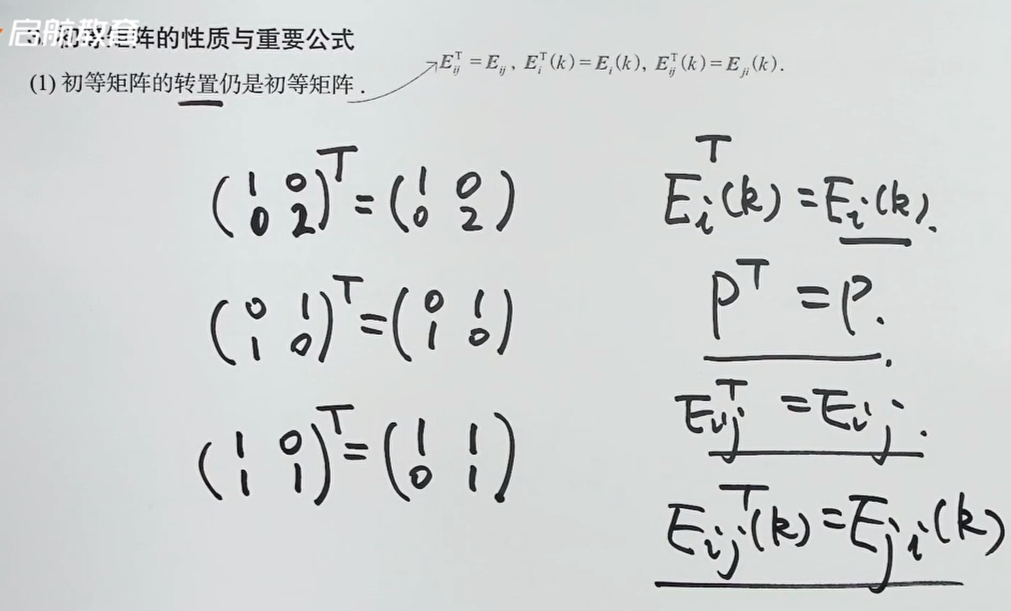 启航教育
3. 初等矩阵的性质与重要公式
(1) 初等矩阵的转置仍是初等矩阵.
E_{ij}^T = E_{ij}, E_i^T(k) = E_i(k), E_{ij}^T(k) = E_{ji}(k).
(1 0; 0 2)^T = (1 0; 0 2)
(0 1; 1 0)^T = (0 1; 1 0)
(1 0; 1 1)^T = (1 1; 0 1)
E_i^T(k) = E_i(k).
P^T = P.
E_{ij}^T = E_{ij}.
E_{ij}^T(k) = E_{ji}(k)